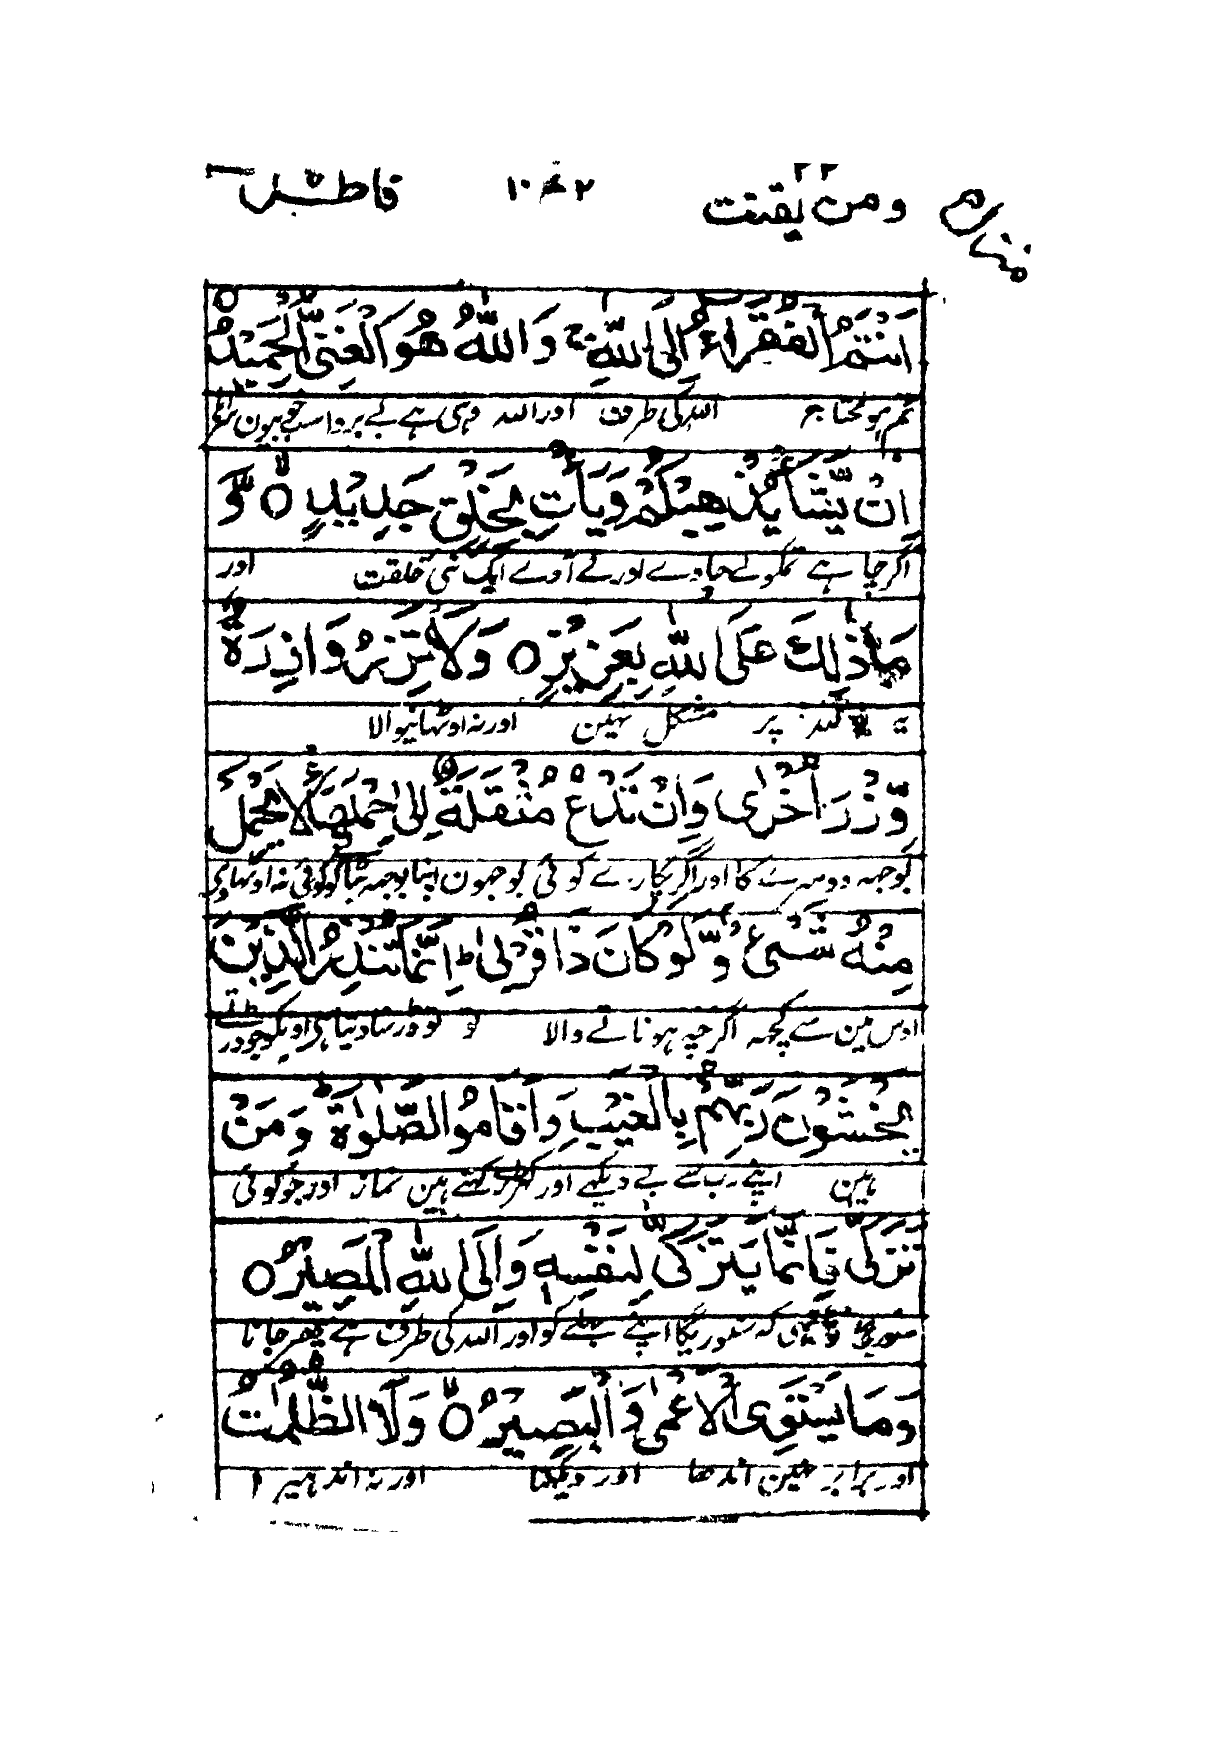 منزل ۵ ومن یقنت ۲۲ ۱۰۰۲ فاطر
اَنْتُمُ الْفُقَرَآءُ اِلَی اللّٰهِ ۚ وَ اللّٰهُ هُوَ الْغَنِیُّ الْحَمِیْدُ ○
تم ہو محتاج اللہ کی طرف اور اللہ وہی ہے بے پروا سب خوبیون
اِنْ یَّشَاْ یُذْهِبْكُمْ وَ یَاْتِ بِخَلْقٍ جَدِیْدٍ ○ وَّ
اگر چاہے تمکو لے جاوے اور لے آوے ایک نئی خلقت اور
مَا ذٰلِكَ عَلَی اللّٰهِ بِعَزِیْزٍ ○ وَ لَا تَزِرُ وَازِرَةٌ
یہ اللہ پر مشکل نہین اور نہ اوٹھانیوالا
وِّزْرَ اُخْرٰی وَ اِنْ تَدْعُ مُثْقَلَةٌ اِلٰی حِمْلِهَا لَا یُحْمَلْ
بوجہہ دوسرے کا اور اگر پکارے کوئی بوجہون اپنا بوجہہ بٹانیکو کوئی نہ اوٹہاوے
مِنْهُ شَیْءٌ وَّ لَوْ كَانَ ذَا قُرْبٰی ؕ اِنَّمَا تُنْذِرُ الَّذِیْنَ
اوس مین سے کچہہ اگرچہ ہو ناتے والا تو تو ڈر سنا دیتا ہی اونکو جو ڈرتے
یَخْشَوْنَ رَبَّهُمْ بِالْغَیْبِ وَ اَقَامُوا الصَّلٰوةَ ؕ وَ مَنْ
ہین اپنے رب سے بے دیکہے اور کھڑی رکہتے ہین نماز اور جو کوئی
تَزَكّٰی فَاِنَّمَا یَتَزَكّٰی لِنَفْسِهٖ وَ اِلَی اللّٰهِ الْمَصِیْرُ ○
سنوریگا تو یہی کہ سنوریگا اپنے بہلے کو اور اللہ کی طرف ہے پھر جانا
وَ مَا یَسْتَوِی الْاَعْمٰی وَ الْبَصِیْرُ ○ وَ لَا الظُّلُمٰتُ
اور برابر نہین اندھا اور دیکہتا اور نہ اندہیرا